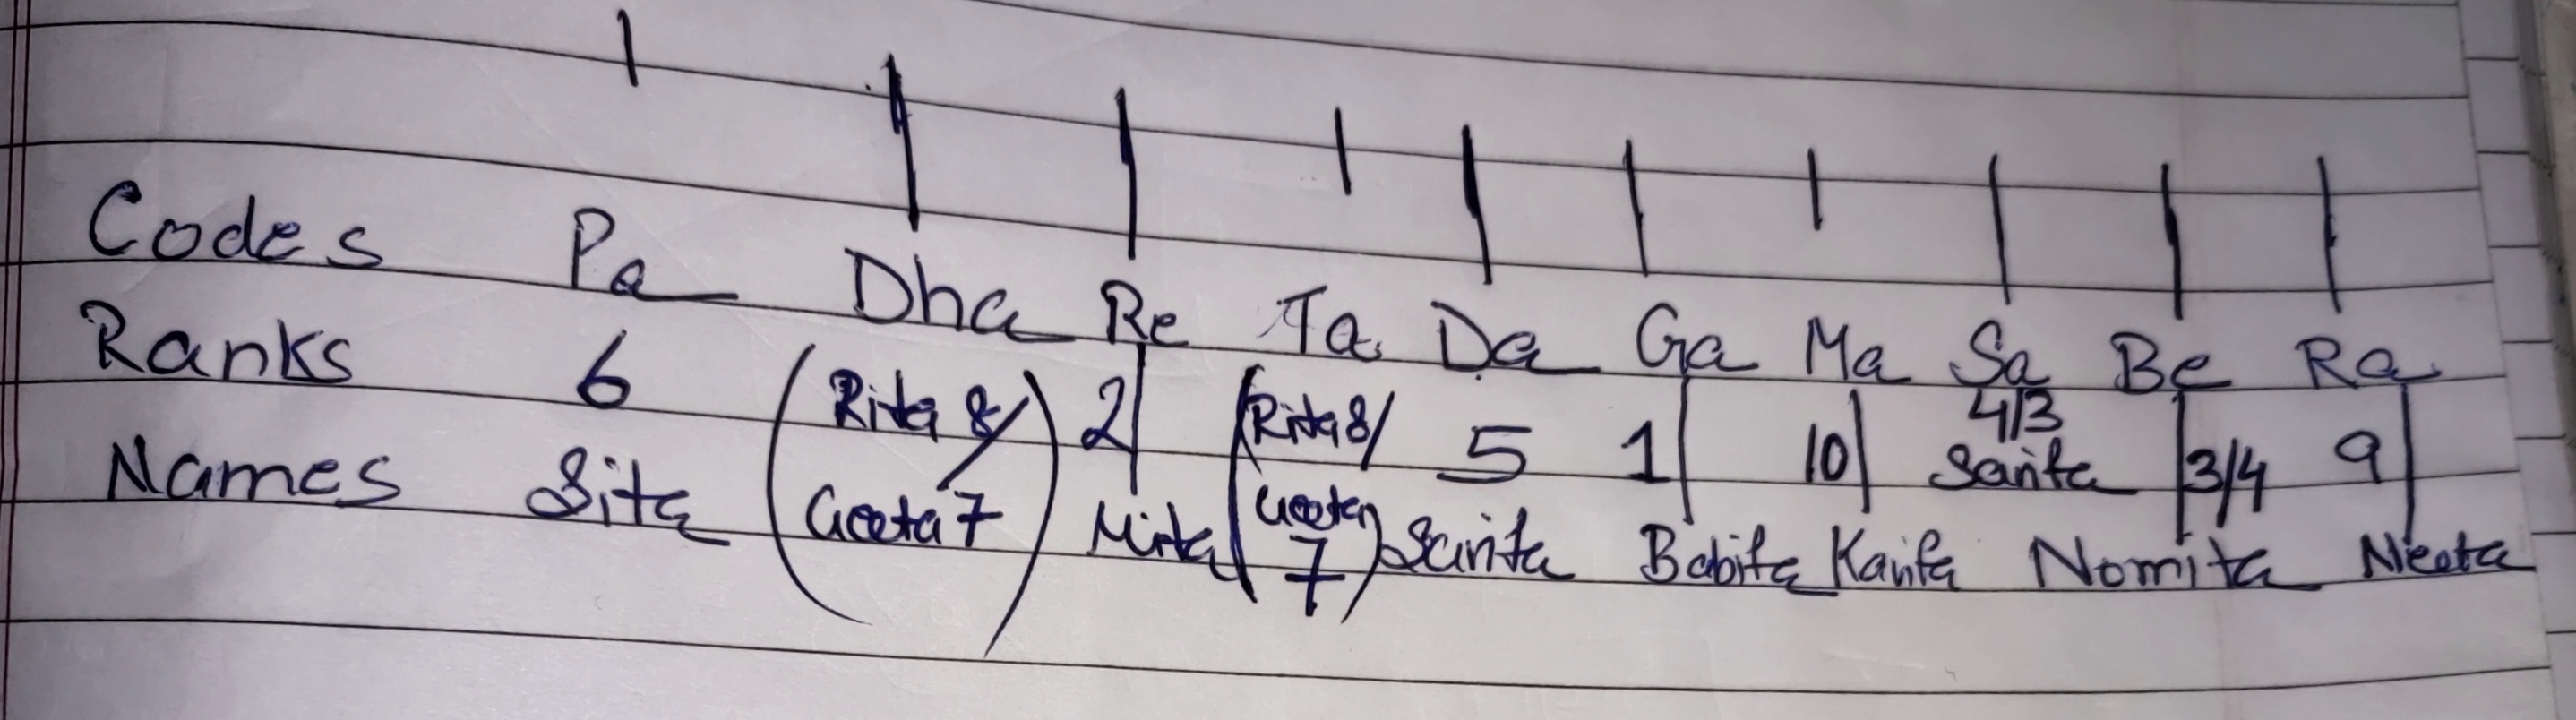 Codes Pa Dha Re Ta Da Ga Ma Sa Be Ra
Ranks 6 (Rita 8/ Geeta 7) 2 (Rita 8/ Geeta 7) 5 1 10 4/3 3/4 9
Names Sita Mita Sarita Babita Kavita Sarita Nomita Neeta